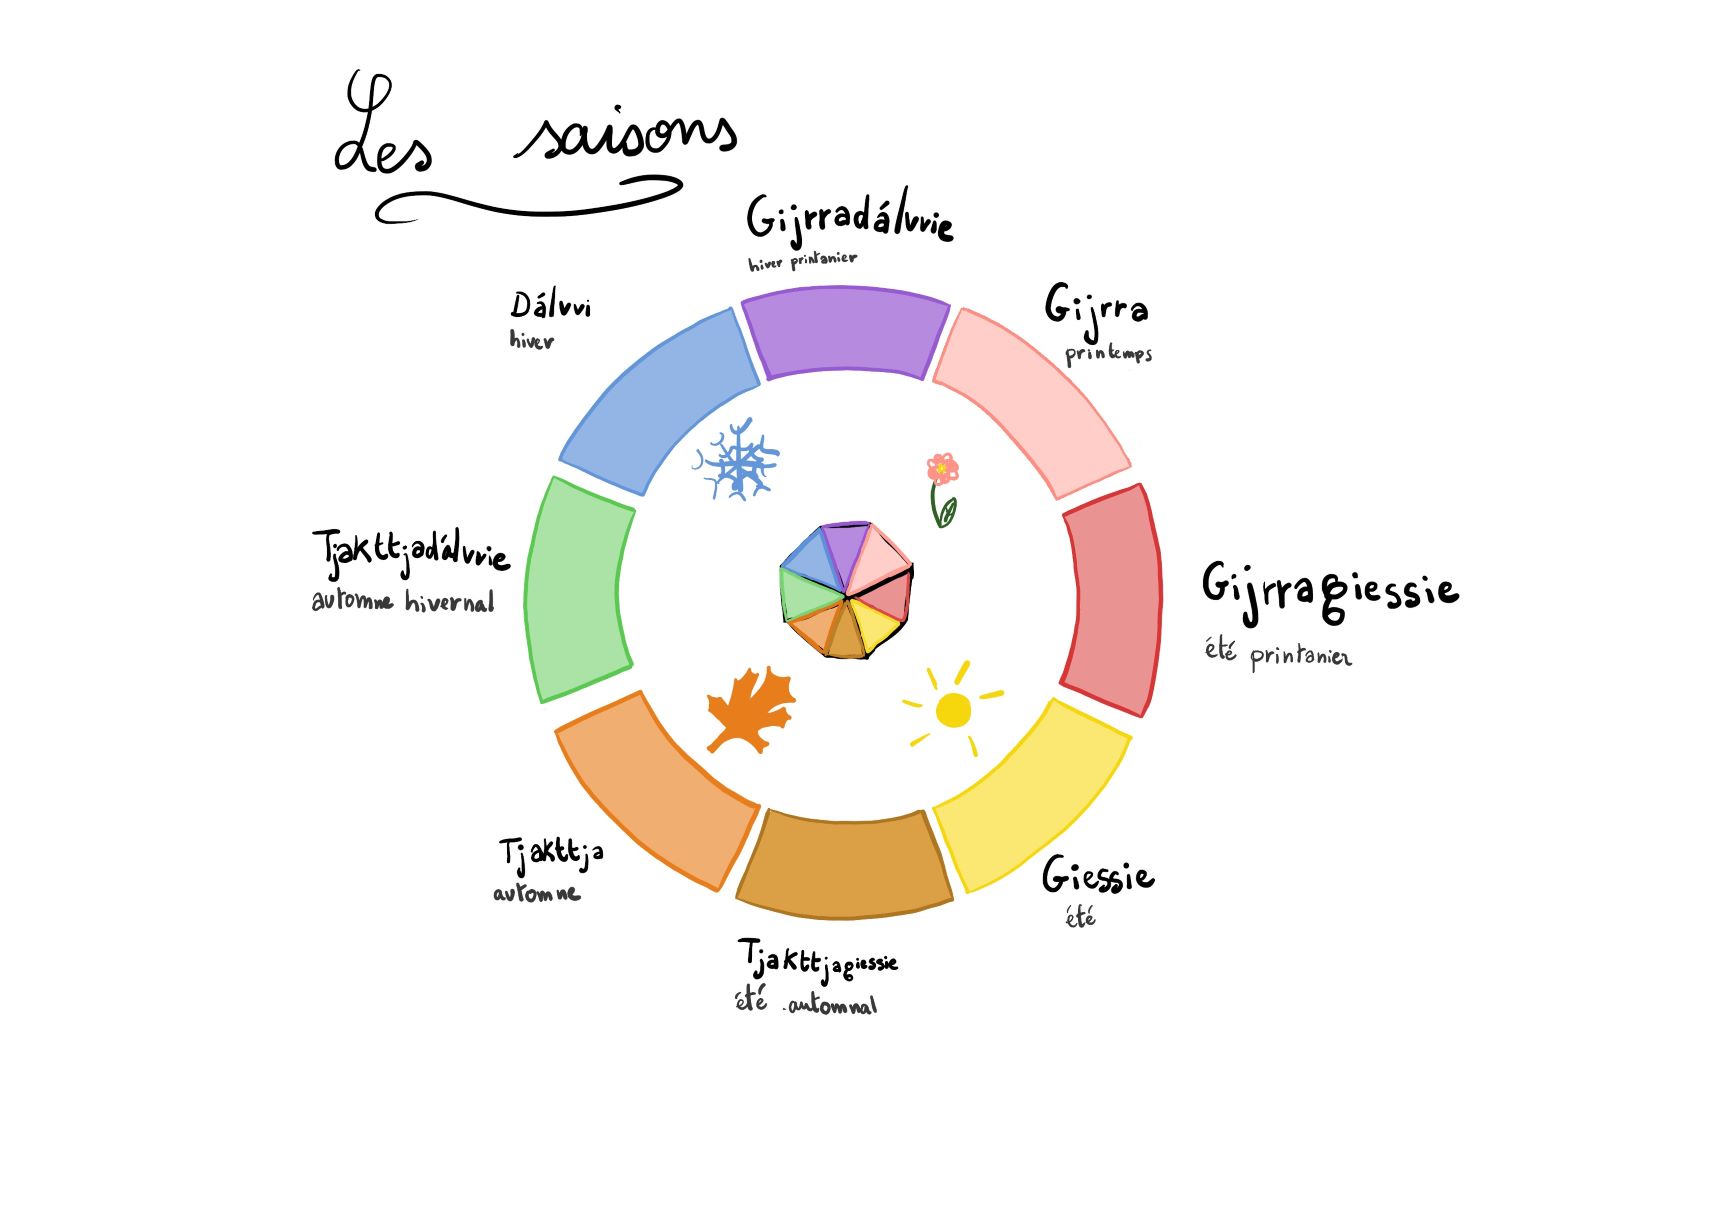 Les saisons
Gijrradálvvie
hiver printanier
Gijrra
printemps
Gijrragiessie
été printanier
Giessie
été
Tjakttjagiessie
été automnal
Tjakttja
automne
Tjakttjadálvvie
automne hivernal
Dálvvi
hiver